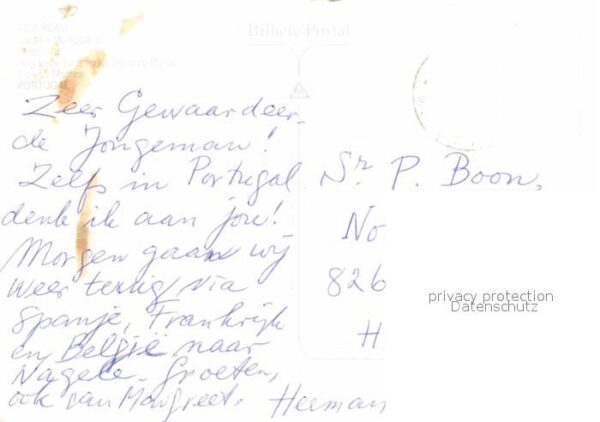 Bilhete Postal
PORTUGAL
Zeer Gewaardeer-
de Jongeman!
Zelfs in Portugal
denk ik aan jou!
Morgen gaan wij
weer terug via
Spanje, Frankrijk
en België naar
Nagele. Groeten,
ook van Margreet. Herman
Sr. P. Boon,
No
826
H
privacy protection
Datenschutz